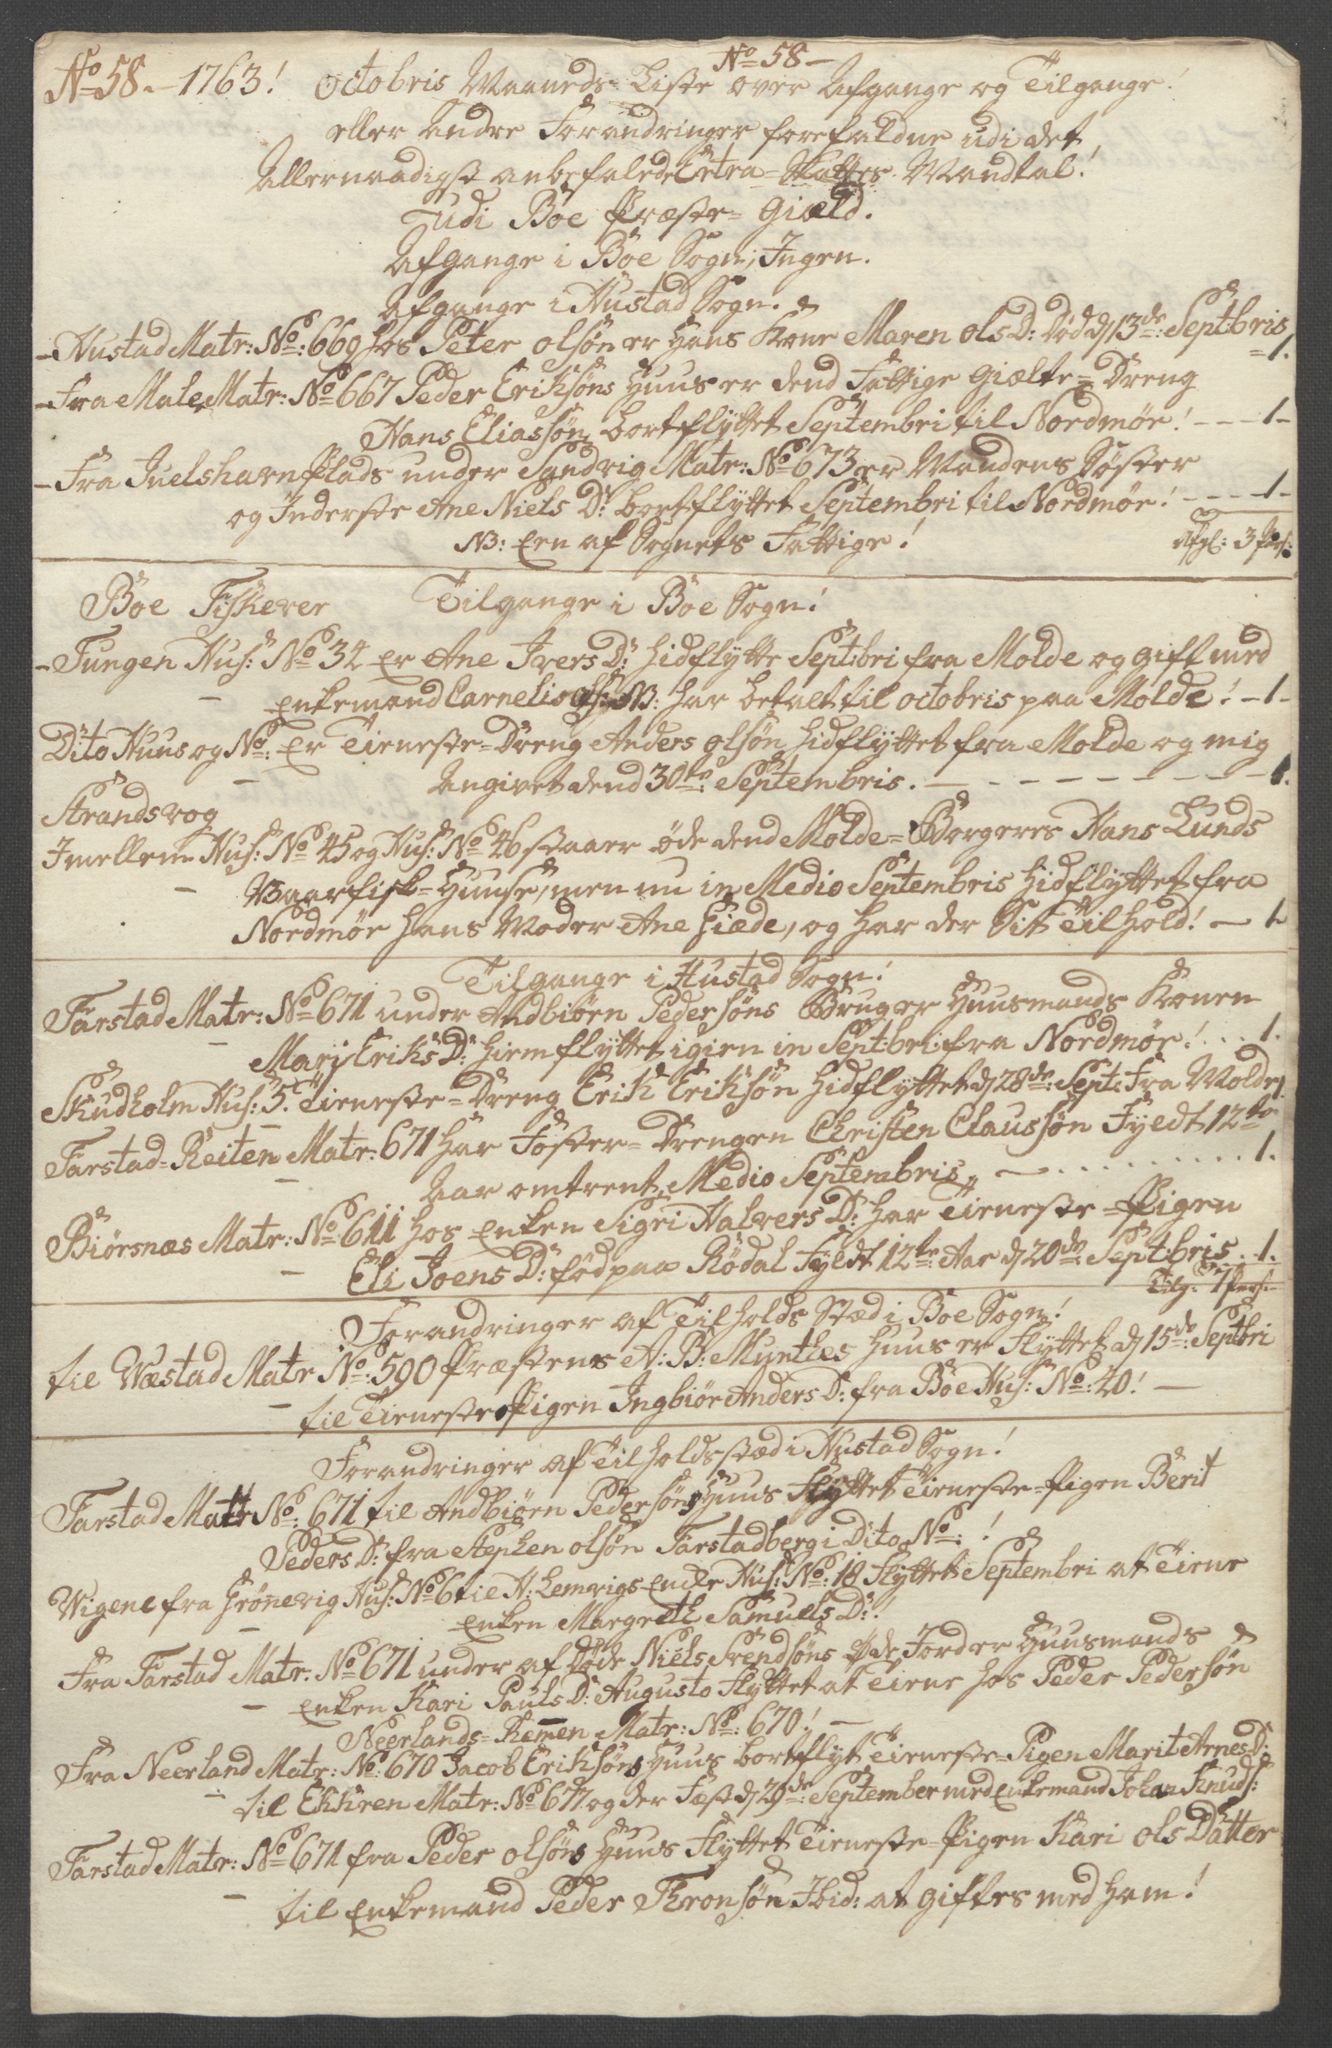 No 58 –
No 58. – 1763! Octobris Maaneds Liste over Afgange og Tilgange!
eller Andre Forandringer forefaldne udi det
Allernaadigst anbefalede Extra-Skattes Mandtal!
Judi Böe Præste-Giæld.
Afgange i Böe Sogn, Ingen.
Afgange i Hustad Sogn.
– Hustad Matr: No: 660 hos Peter Olsön er Hans Kone Maren Ols D: Död d 13de: Septbris 1.
– Fra Male Matr: No 667 Peder Eriksöns Huus er dend Fattige Giælte-Dreng
Hans Eliassön bortflyttet Septembri til Nordmör! – – – 1 –
– Fra Juelshavn Plads under Sandvig Matr: No 673 er Mandens Söster
og Inderste Ane Niels D: bortflyttet Septembri til Nordmör! – – – 1 –
NB: Een af Sognets Fattige! Afg: 3 Pers:
Böe Fiskever Tilgange i Böe Sogn!
– Tungen Hus: No 34 Er Ane Ivers D: hidflytte Septbri fra Molde og gift med
Enkemand Carnelis Ols: NB: har betalt til octobris paa Molde! – 1 –
Dito Huus og No: Er Tieneste-Dreng Anders Olsön hidflyttet fra Molde og mig
Angivet dend 30te: Septembris. – – – – – – – 1.
Strandsvog
Imellem Hus: No 45 og Hus: No 46 staaer öde dend Molde-Borgeres Hans Lunds
Vaarfisk-Huuse, men nu in Medio Septembris hidflyttet fra
Nordmör hans Moder Ane Hiede, og har der Sit Tilhold! – 1
Tilgange i Hustad Sogn!
Farstad Matr: No 671 under Andbiörn Pedersöns Bruger Huusmands Konen
Mari Eriks D: hiemflyttet igien in Septbri fra Nordmör! . . . 1.
Skudholm Hus: 5. Tieneste-Dreng Erik Eriksön hidflyttet d 28de Sept: Fra Molde 1
Farstad-Reiten Matr: 671 har Foster-Drengen Christen Claussön Fyldt 12te
Aar omtrent Medio Septembris – . . . . . . . 1.
Biörsnæs Matr: No 611 hos Enken Sigri Halvers D: har Tieneste-Pigen
Eli Joens D: föd paa Rödal Fyldt 12te Aar d 20de Septbris. 1.
Tilg: 7 Pers:
Forandringer af Tilholds Sted i Böe Sogn!
til Wæstad Matr No: 590 Præstens A: B: Mynthes Huus er Flyttet d 15de: Septbri
til Tieneste Pigen Ingbiör Anders D: fra Böe Hus: No: 40! –
Forandringer af Tilholdsted i Hustad Sogn!
Farstad Matr No: 671 til Andbiörn Pedersöns Huus Flyttet Tieneste-Pigen Berit
Peders D: fra Stephen Olsön Farstadberg i Dito No: !
Wigene fra Grönevig Hus: No 6 til A: Lemvigs Enke Hus: No: 18 Flyttet Septembri at Tiene
Enken Margreth Samuels D: !
Fra Farstad Matr: No 671 under af Döde Niels Svendsöns Öde Jorder Huusmands
Enken Kari Pauls D: Augusto Flyttet at Tiene hos Peder Pedersön
Neerlands-Remen Matr: No: 670! –
Fra Neerland Matr: No: 670 Jacob Eriksöns Huus bortflyt Tieneste-Pigen Marit Arnes D:
til Ekkren Matr: No 677 og der Fæst d 29de: September med Enkemand Johan Knuds:
Farstad Matr: No 671 fra Peder Olsöns Huus Flyttet Tieneste-Pigen Kari Ols Datter
til Enkemand Peder Thronsön Ibid: at giftes med ham!